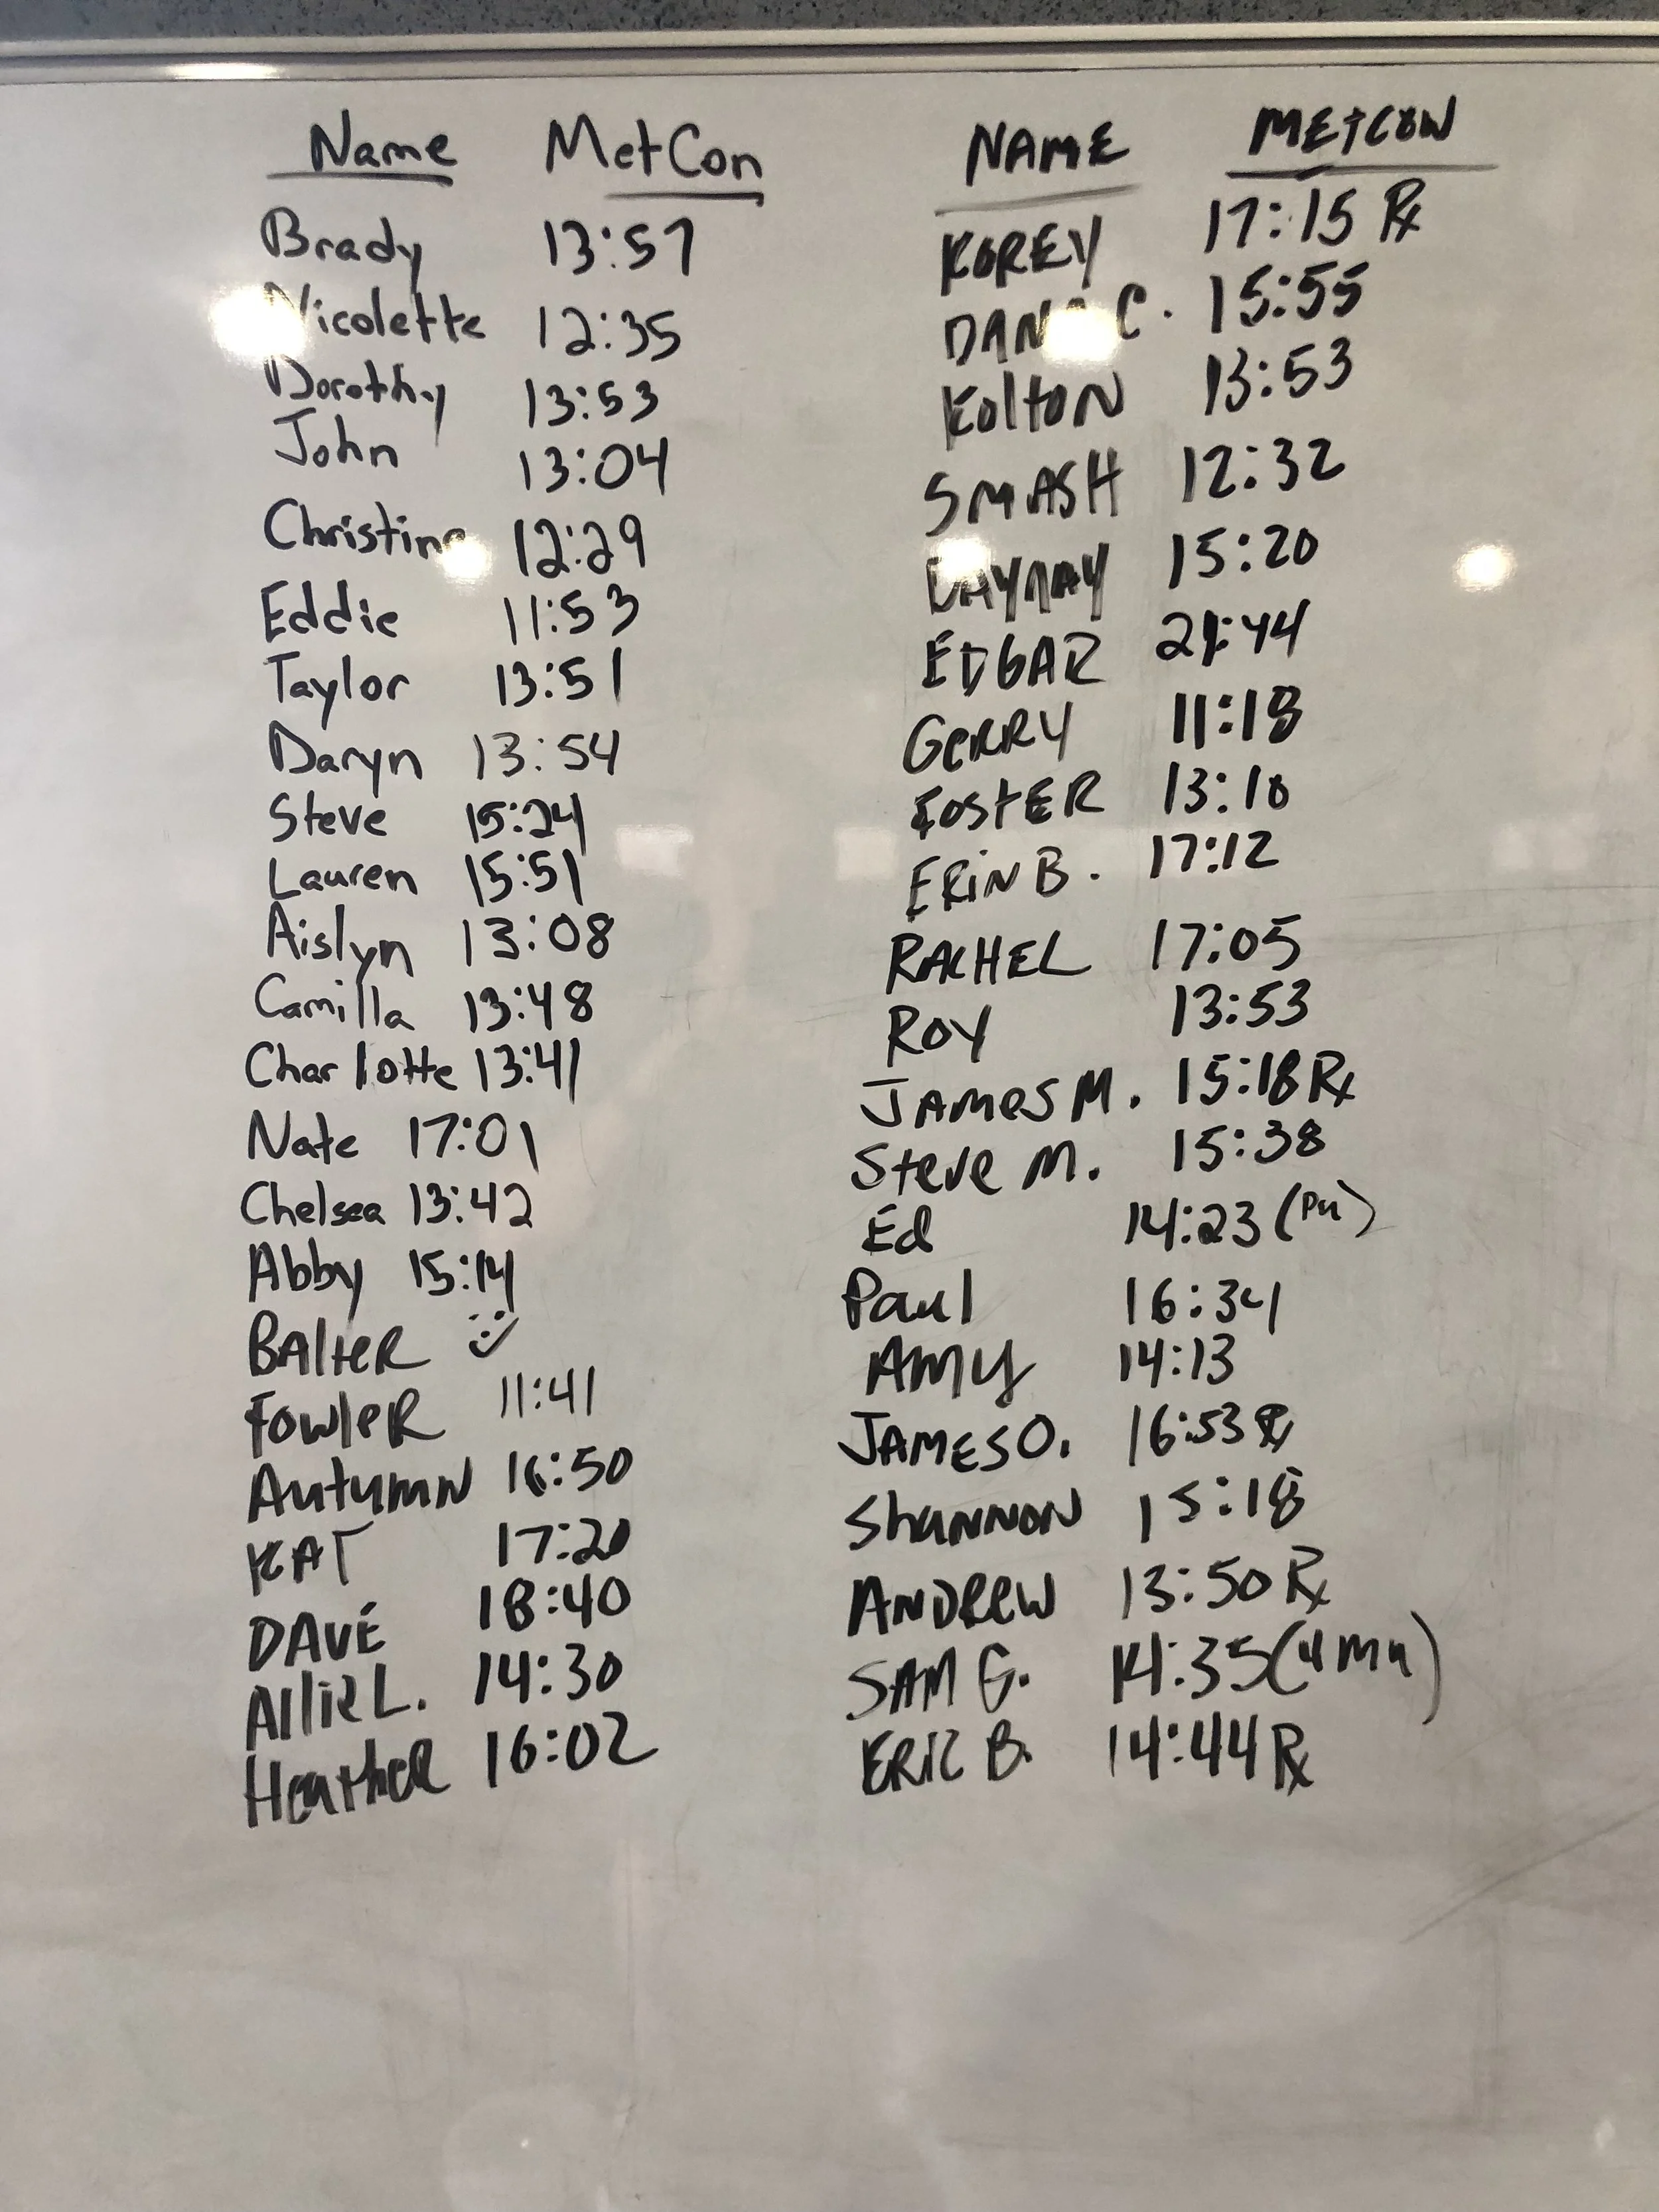 Name MetCon
Brady 13:57
Nicolette 12:35
Dorothy 13:53
John 13:04
Christine 12:29
Eddie 11:53
Taylor 13:51
Daryn 13:54
Steve 15:24
Lauren 15:51
Aislyn 13:08
Camilla 13:48
Charlotte 13:41
Nate 17:01
Chelsea 13:42
Abby 15:14
BAlteR
FowleR 11:41
Autumn 16:50
KAT 17:20
DAVE 18:40
Allie L. 14:30
Heather 16:02
NAME METCON
KOREY 17:15 Rx
C. 15:55
KoltoN 13:53
SMASH 12:32
15:20
EDGAR 21:44
GeRRY 11:18
FostER 13:10
ERiN B. 17:12
RACHEL 17:05
ROY 13:53
JAMES M. 15:18 Rx
Steve M. 15:38
Ed 14:23 (PU)
Paul 16:34
AMy 14:13
JAMES O. 16:53 Rx
ShaNNoN 15:18
ANDRew 13:50 Rx
SAM G. 14:35 (4 mu)
ERIC B. 14:44 Rx